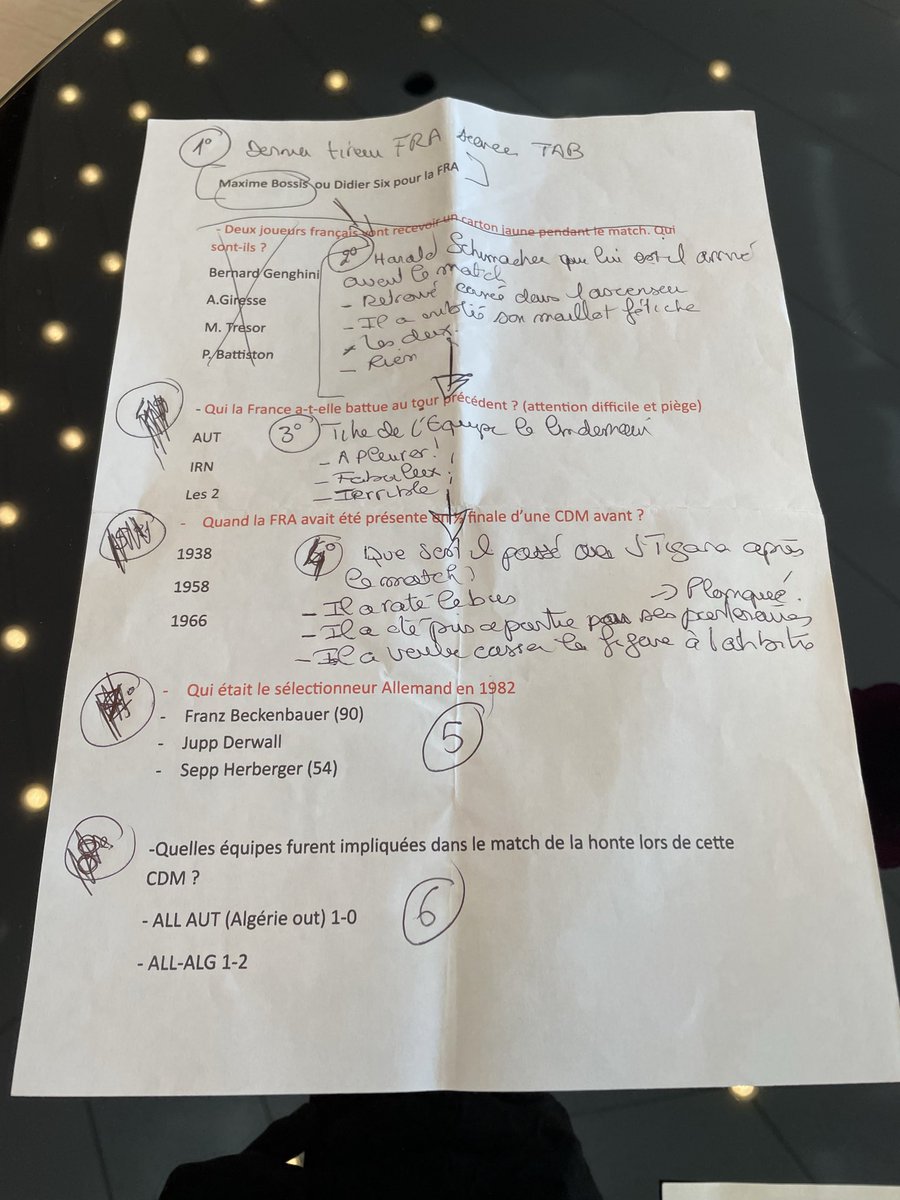 1° Dernier tireur FRA séance TAB
Maxime Bossis ou Didier Six pour la FRA
- Deux joueurs français vont recevoir un carton jaune pendant le match. Qui
sont-ils ?
Bernard Genghini
A.Giresse
M. Trésor
P. Battiston
2° Harald Schumacher que lui est il arrivé
avant le match
- Retrouvé coincé dans l'ascenseur
- Il a oublié son maillot fétiche
- Les deux.
- Rien
- Qui la France a-t-elle battue au tour précédent ? (attention difficile et piège)
AUT
IRN
Les 2
3° Titre de l'Equipe le lendemain
- A Pleurer!
- Fabuleux!
- Terrible!
- Quand la FRA avait été présente en ½ finale d'une CDM avant ?
1938
1958
1966
4° Que s'est il passé avec J Tigana après
le match?
- Il a raté le bus
→ Planqué.
- Il a été pris a partie par ses partenaires
- Il a voulu casser la figure à l'arbitre
- Qui était le sélectionneur Allemand en 1982
- Franz Beckenbauer (90)
- Jupp Derwall
- Sepp Herberger (54)
5
-Quelles équipes furent impliquées dans le match de la honte lors de cette
CDM ?
- ALL AUT (Algérie out) 1-0
- ALL-ALG 1-2
6